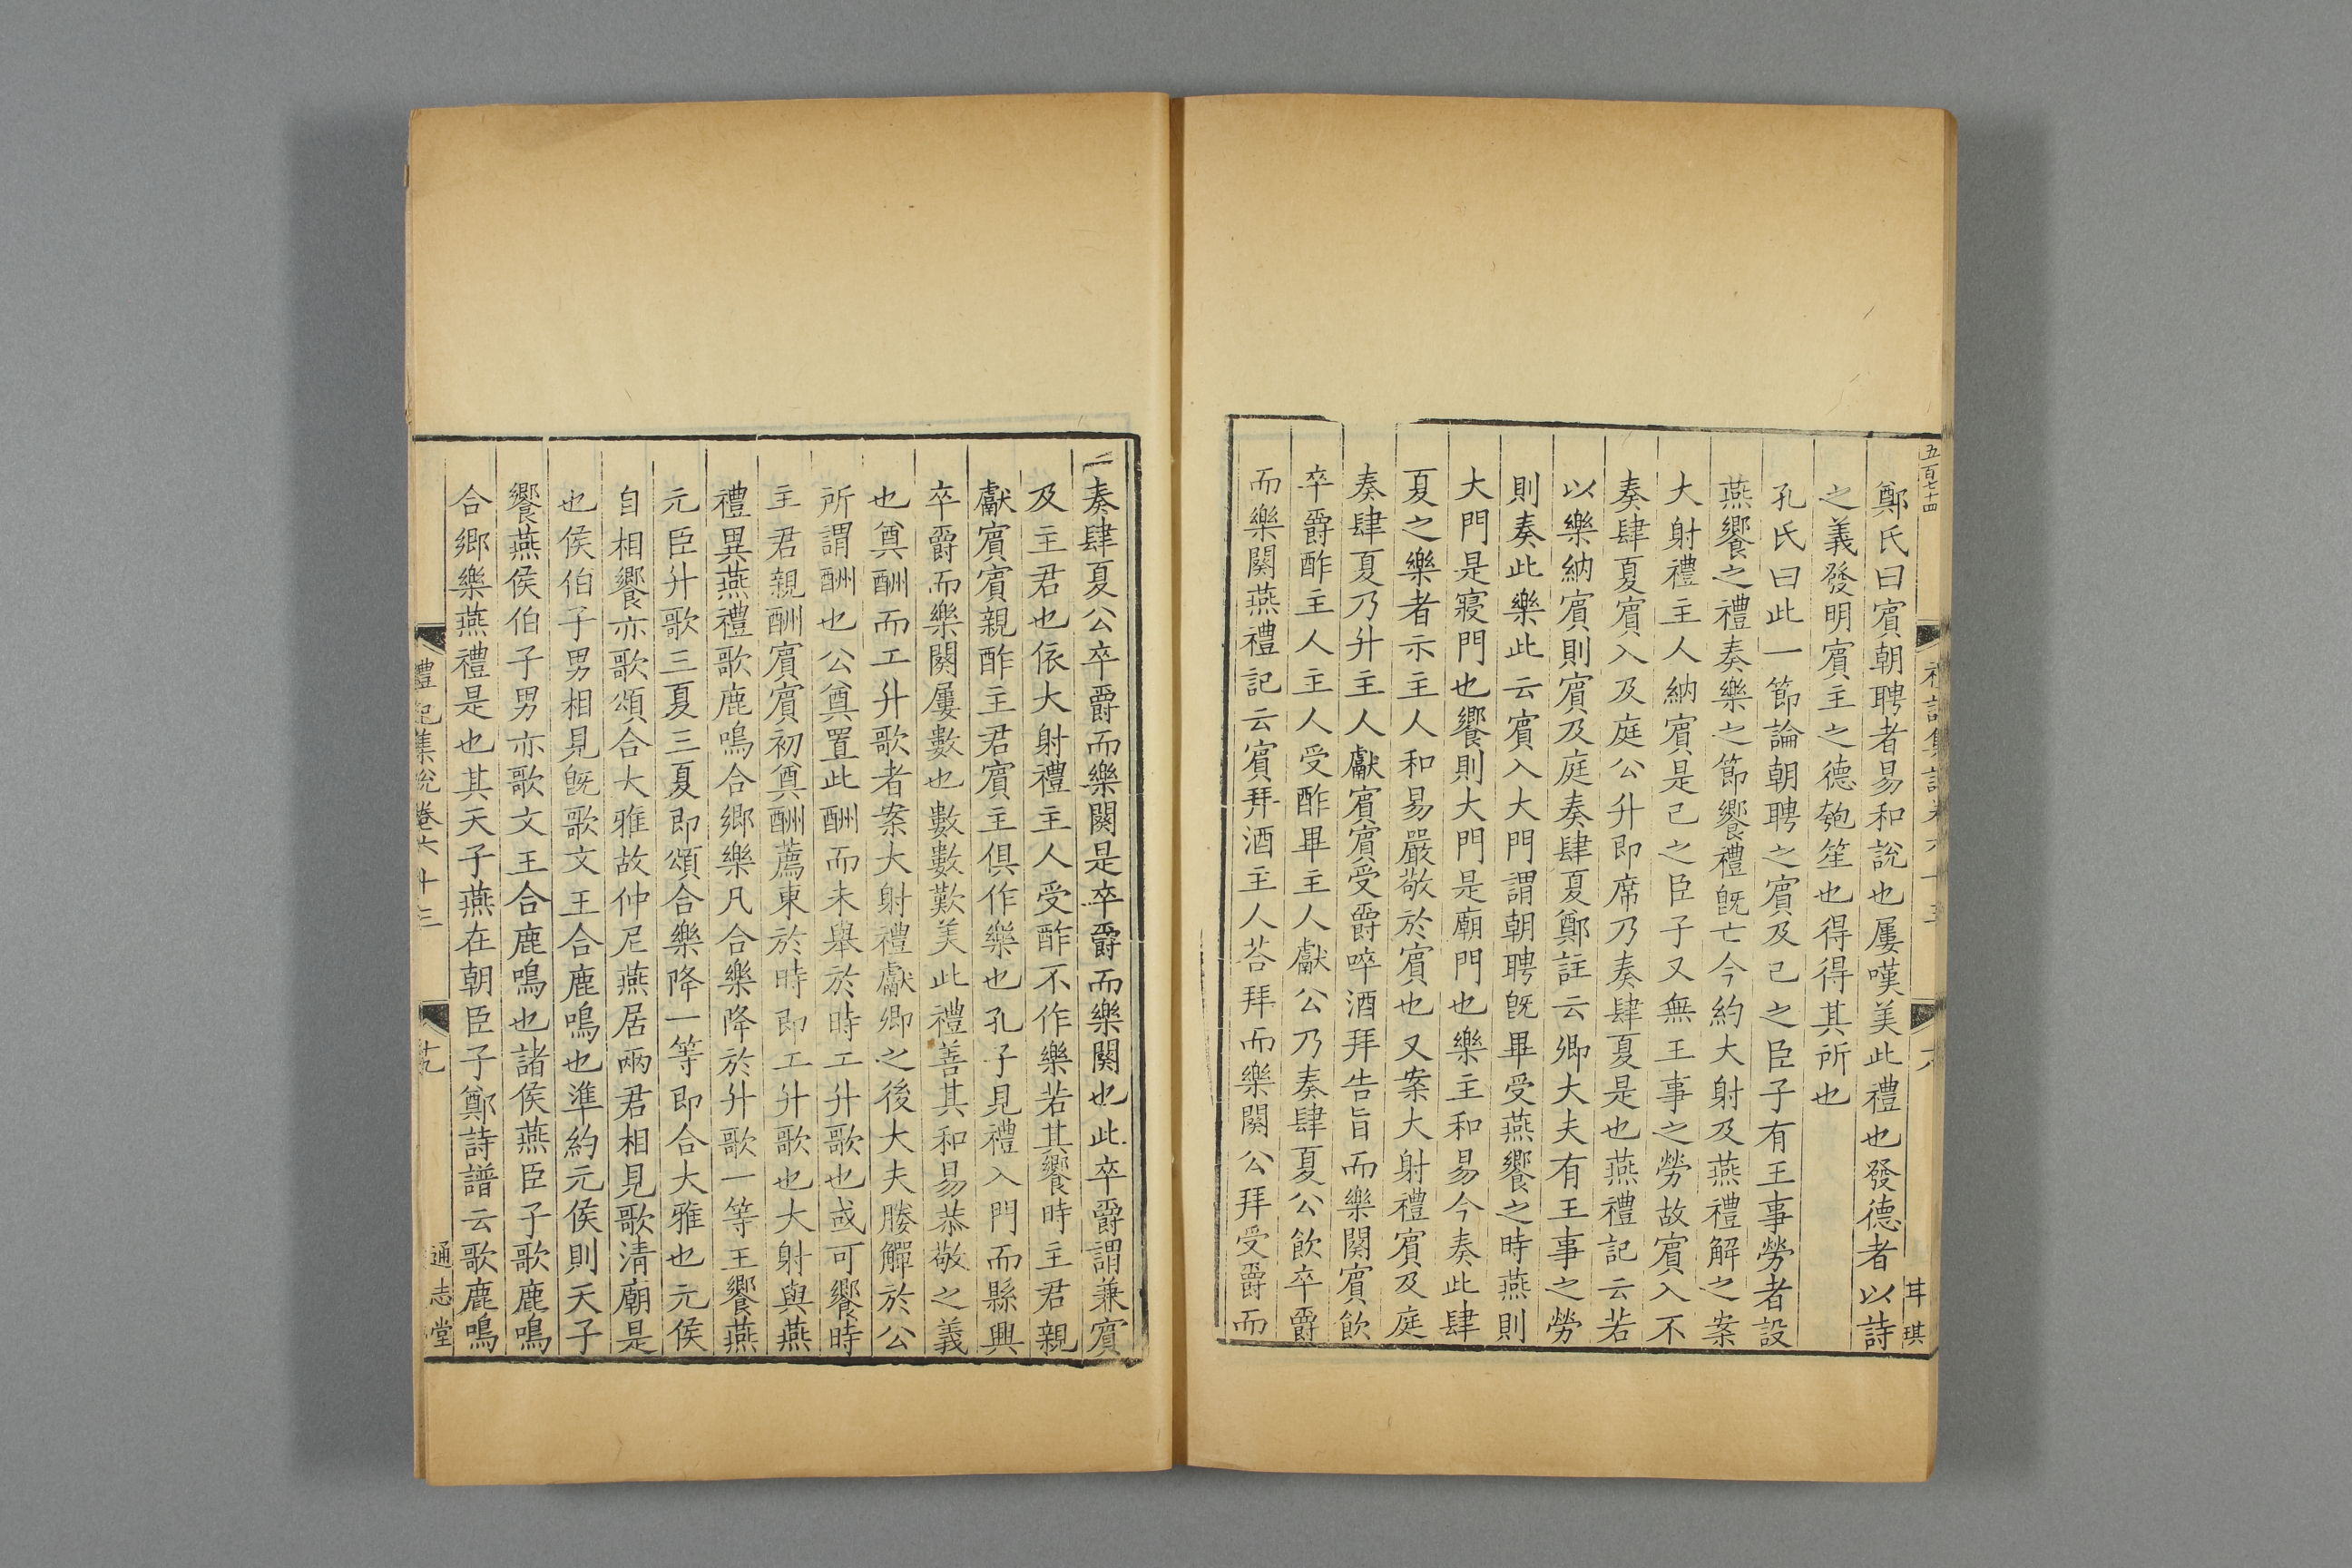 五百七十四
鄭氏曰賓朝聘者易和說也屢嘆美此禮也發德者以詩
之義發明賓主之德匏笙也得得其所也
孔氏曰此一節論朝聘之賓及己之臣子有王事勞者設
燕饗之禮奏樂之節饗禮旣亡今約大射及燕禮解之案
大射禮主人納賓是己之臣子又無王事之勞故賓入不
奏肆夏賓入及庭公升即席乃奏肆夏是也燕禮記云若
以樂納賓則賓及庭奏肆夏鄭註云卿大夫有王事之勞
則奏此樂此云賓入大門謂朝聘旣畢受燕饗之時燕則
大門是寢門也饗則大門是廟門也樂主和易今奏此肆
夏之樂者示主人和易嚴敬於賓也又案大射禮賓及庭
奏肆夏乃升主人獻賓賓受爵啐酒拜告旨而樂闋賓飲
卒爵酢主人主人受酢畢主人獻公乃奏肆夏公飲卒爵
而樂闋燕禮記云賓拜酒主人荅拜而樂闋公拜受爵而
奏肆夏公卒爵而樂闋是卒爵而樂闋也此卒爵謂兼賓
及主君也依大射禮主人受酢不作樂若其饗時主君親
獻賓賓親酢主君賓主俱作樂也孔子見禮入門而縣興
卒爵而樂闋屢數也數數歎美此禮善其和易恭敬之義
也奠酬而工升歌者案大射禮獻卿之後大夫媵觶於公
所謂酬也公奠置此酬而未舉於時工升歌也或可饗時
主君親酬賓賓初奠酬薦東於時即工升歌也大射與燕
禮異燕禮歌鹿鳴合鄉樂凡合樂降於升歌一等王饗燕
元臣升歌三夏三夏即頌合樂降一等即合大雅也元侯
自相饗亦歌頌合大雅故仲尼燕居兩君相見歌清廟是
也侯伯子男相見旣歌文王合鹿鳴也準約元侯則天子
饗燕侯伯子男亦歌文王合鹿鳴也諸侯燕臣子歌鹿鳴
合鄉樂燕禮是也其天子燕在朝臣子鄭詩譜云歌鹿鳴
禮記集說卷六十三
十九
通志堂